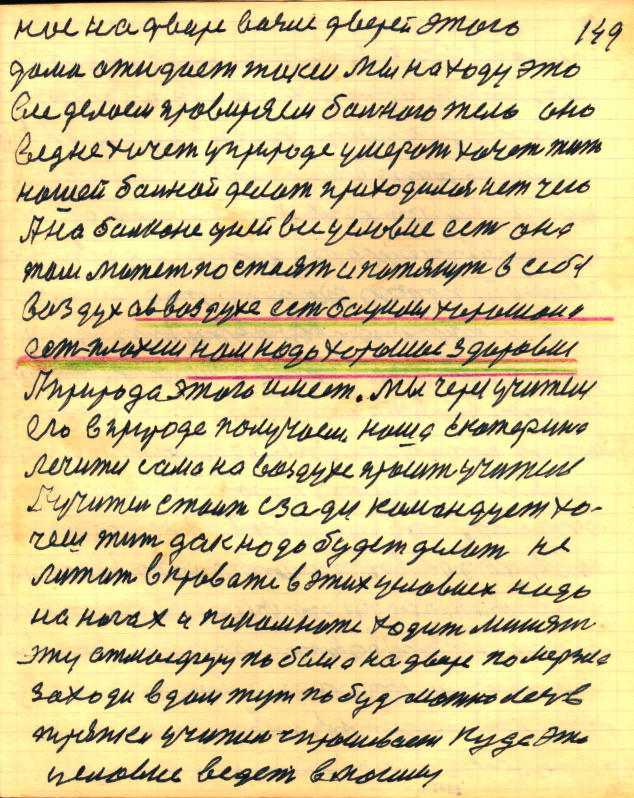 ное на дваре вачие дверей этого 149
дома ожидает такси мы находу это
все делаем провиряем больного тело оно
ведне хочет уприроде умерат хочет жит
нашей больной делат приходился нет чего
А на балконе дней все условие ест она
там может постоят и потянут в себя
воздух авваздухе ест бацили хорошаи и
ест плохии нам надо хорошее здоровие
А природа этого имеет. мы чериз учитиля
его в природе получаем. наша екатерина
лечити сама на воздухе просит учителя
Аучител стоит сзади командует хо-
чеш жит дак надо будет делат не
лижат вкровати вэтих условиех надо
на ногах и понемноге ходит минят
эту атмосферу побыл о на дваре померзне
заходи вдом тут побуд можно лечв
учител спрашивает куда эта
условие ведет вмогилу